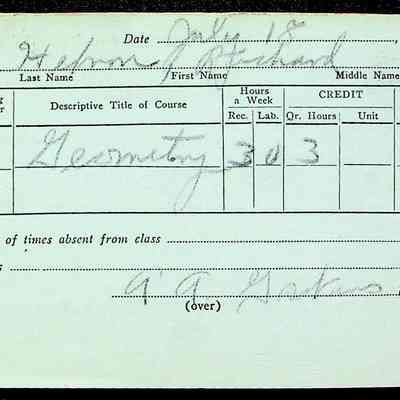 Date July 18,
Richard
Last Name First Name Middle Name
Descriptive Title of Course Hours a Week CREDIT
Rec. Lab. Qr. Hours Unit
Geometry 3 0 3
of times absent from class
A A
(over)